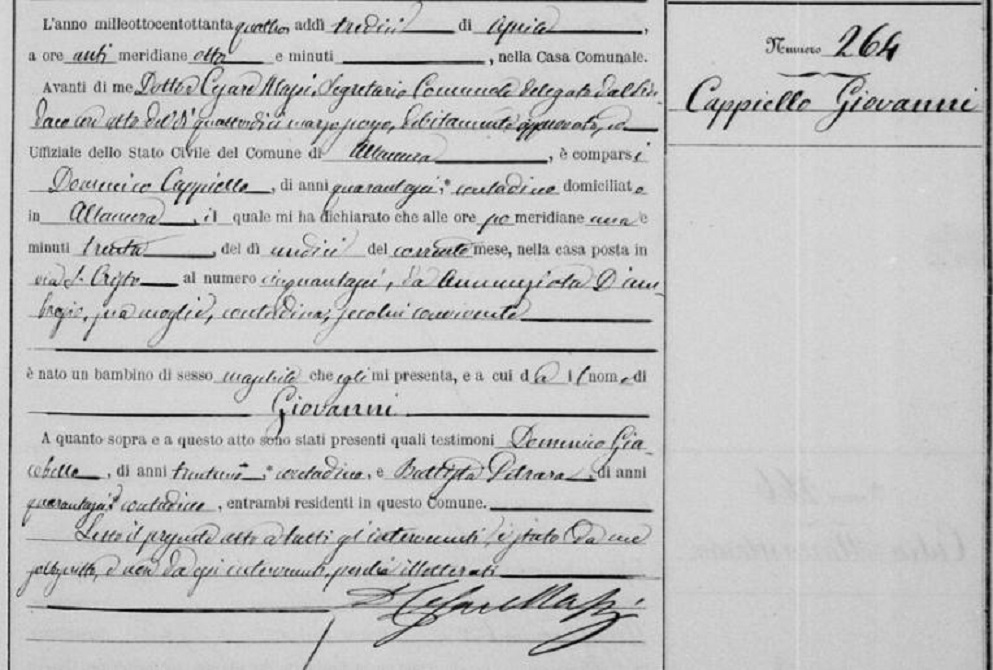 L'anno milleottocentottantaquattro addì tredici di Aprile,
a ore anti meridiane otto e minuti , nella Casa Comunale.
Avanti di me Dottor Cesare Masi, Segretario Comunale delegato dal Sin-
daco con atto del dì quattordici marzo, debitamente approvato,
Uffiziale dello Stato Civile del Comune di Altamura, è comparso
Domenico Cappiello, di anni quarantasei, contadino domiciliato
in Altamura, il quale mi ha dichiarato che alle ore po meridiane una e
minuti trenta, del dì undici del corrente mese, nella casa posta in
via S. Cristo al numero cinquantasei, da Annunziata D'Am-
brogio, sua moglie, contadina, secolui convivente
è nato un bambino di sesso maschile che egli mi presenta, e a cui dà il nome di
Giovanni
A quanto sopra e a questo atto sono stati presenti quali testimoni Domenico Gia-
cobello, di anni trentuno, contadino, e Battista Petrara, di anni
quarantasei, contadino, entrambi residenti in questo Comune.
Letto il presente atto a tutti gl'intervenuti, è stato da me
sottoscritto, e non da essi intervenuti, perché illetterati
D. Cesare Masi
Numero 264
Cappiello Giovanni